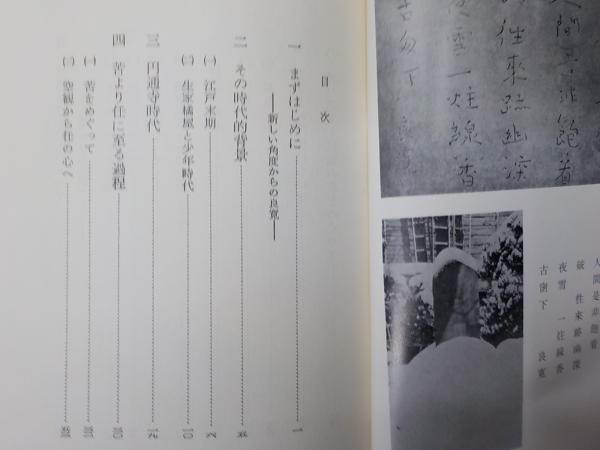 人間是非飽看
往來跡幽深
雪一炷線香
下
人間是非飽看
破 往來跡幽深
夜雪 一炷線香
古窗下 良寛
目次
一 まずはじめに……一
――新しい角度からの良寛――
二 その時代的背景……五
㈠ 江戸末期……六
㈡ 生家橘屋と少年時代……一〇
三 円通寺時代……一九
四 苦より任に至る過程……三〇
㈠ 苦をめぐって……
㈡ 空観から任の心へ……